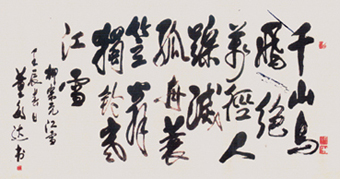 千山鳥
飛絕
萬徑人
蹤滅
孤舟蓑
笠翁
獨釣寒
江雪
柳宗元江雪
辰春日